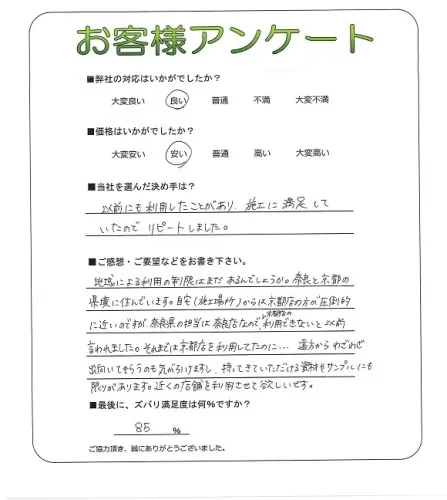 お客様アンケート
■弊社の対応はいかがでしたか?
大変良い 良い 普通 不満 大変不満
■価格はいかがでしたか?
大変安い 安い 普通 高い 大変高い
■当社を選んだ決め手は?
以前にも利用したことがあり、施工に満足して
いたので リピートしました。
■ご感想・ご要望などをお書き下さい。
地域による利用の制限はまだあるんでしょうか。奈良と京都の
県境に住んでいます。自宅(施工場所)からは京都店の方が圧倒的
京都店の
に近いのですが、奈良県の担当は奈良店なので、利用できないと以前
言われました。それまでは京都店を利用してたのに… 遠方からわざわざ
出向いてもらうのも気がひけますし、持ってきていただける資材やサンプルにも
限りがあります。近くの店舗を利用させて欲しいです。
■最後に、ズバリ満足度は何%ですか?
85 %
ご協力頂き、誠にありがとうございました。